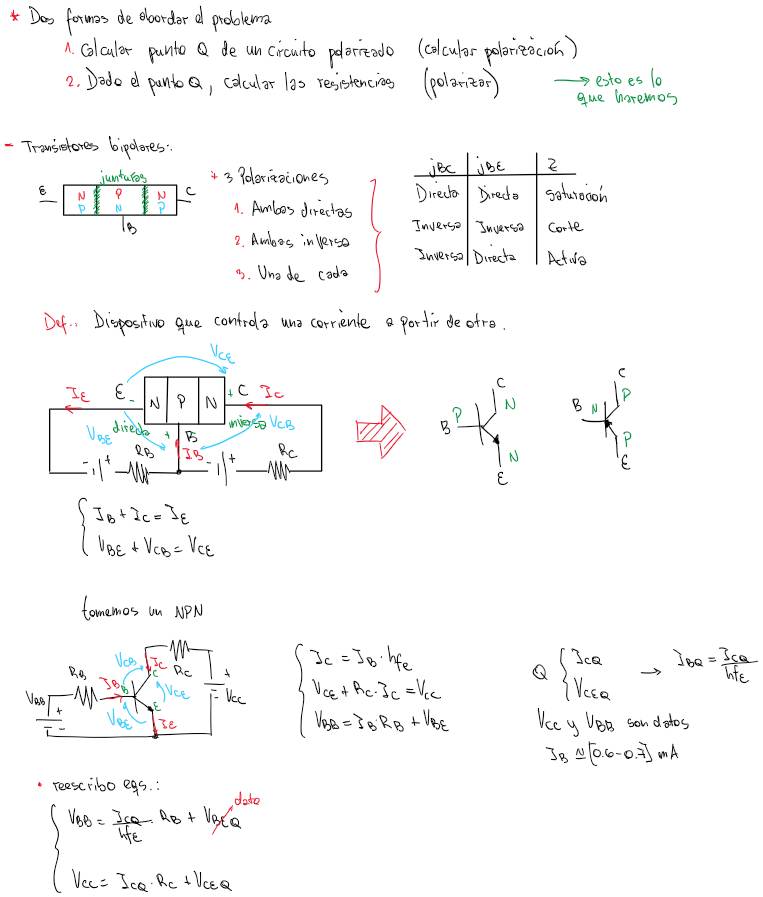 * Dos formas de abordar el problema
1. Calcular punto Q de un circuito polarizado (calcular polarización)
2. Dado el punto Q, calcular las resistencias (polarizar) → esto es lo
que haremos
- Transistores bipolares:.
junturas
E N P N C
P N P
B
* 3 Polarizaciones
1. Ambas directas
2. Ambas inversa
3. Una de cada
jBC jBE Z
Directa Directa Saturación
Inversa Inversa Corte
Inversa Directa Activa
Def.: Dispositivo que controla una corriente a partir de otra.
VCE
IE E - N P N + C IC
VBE directa + B inversa VCB
RB IB RC
- + - +
IB + IC = IE
VBE + VCB = VCE
C
B P N
N
E
C
B N P
P
E
tomemos un NPN
VCB IC RC
RB IB B C VCE + VCC
VBB + VBE E IE
IC = IB · hfE
VCE + RC · IC = VCC
VBB = IB · RB + VBE
Q ICQ → IBQ = ICQ/hfE
VCEQ
VCC y VBB son datos
IB ≈ [0.6-0.7] mA
• reescribo eqs.:
VBB = ICQ/hfE · RB + VBEQ dato
VCC = ICQ · RC + VCEQ